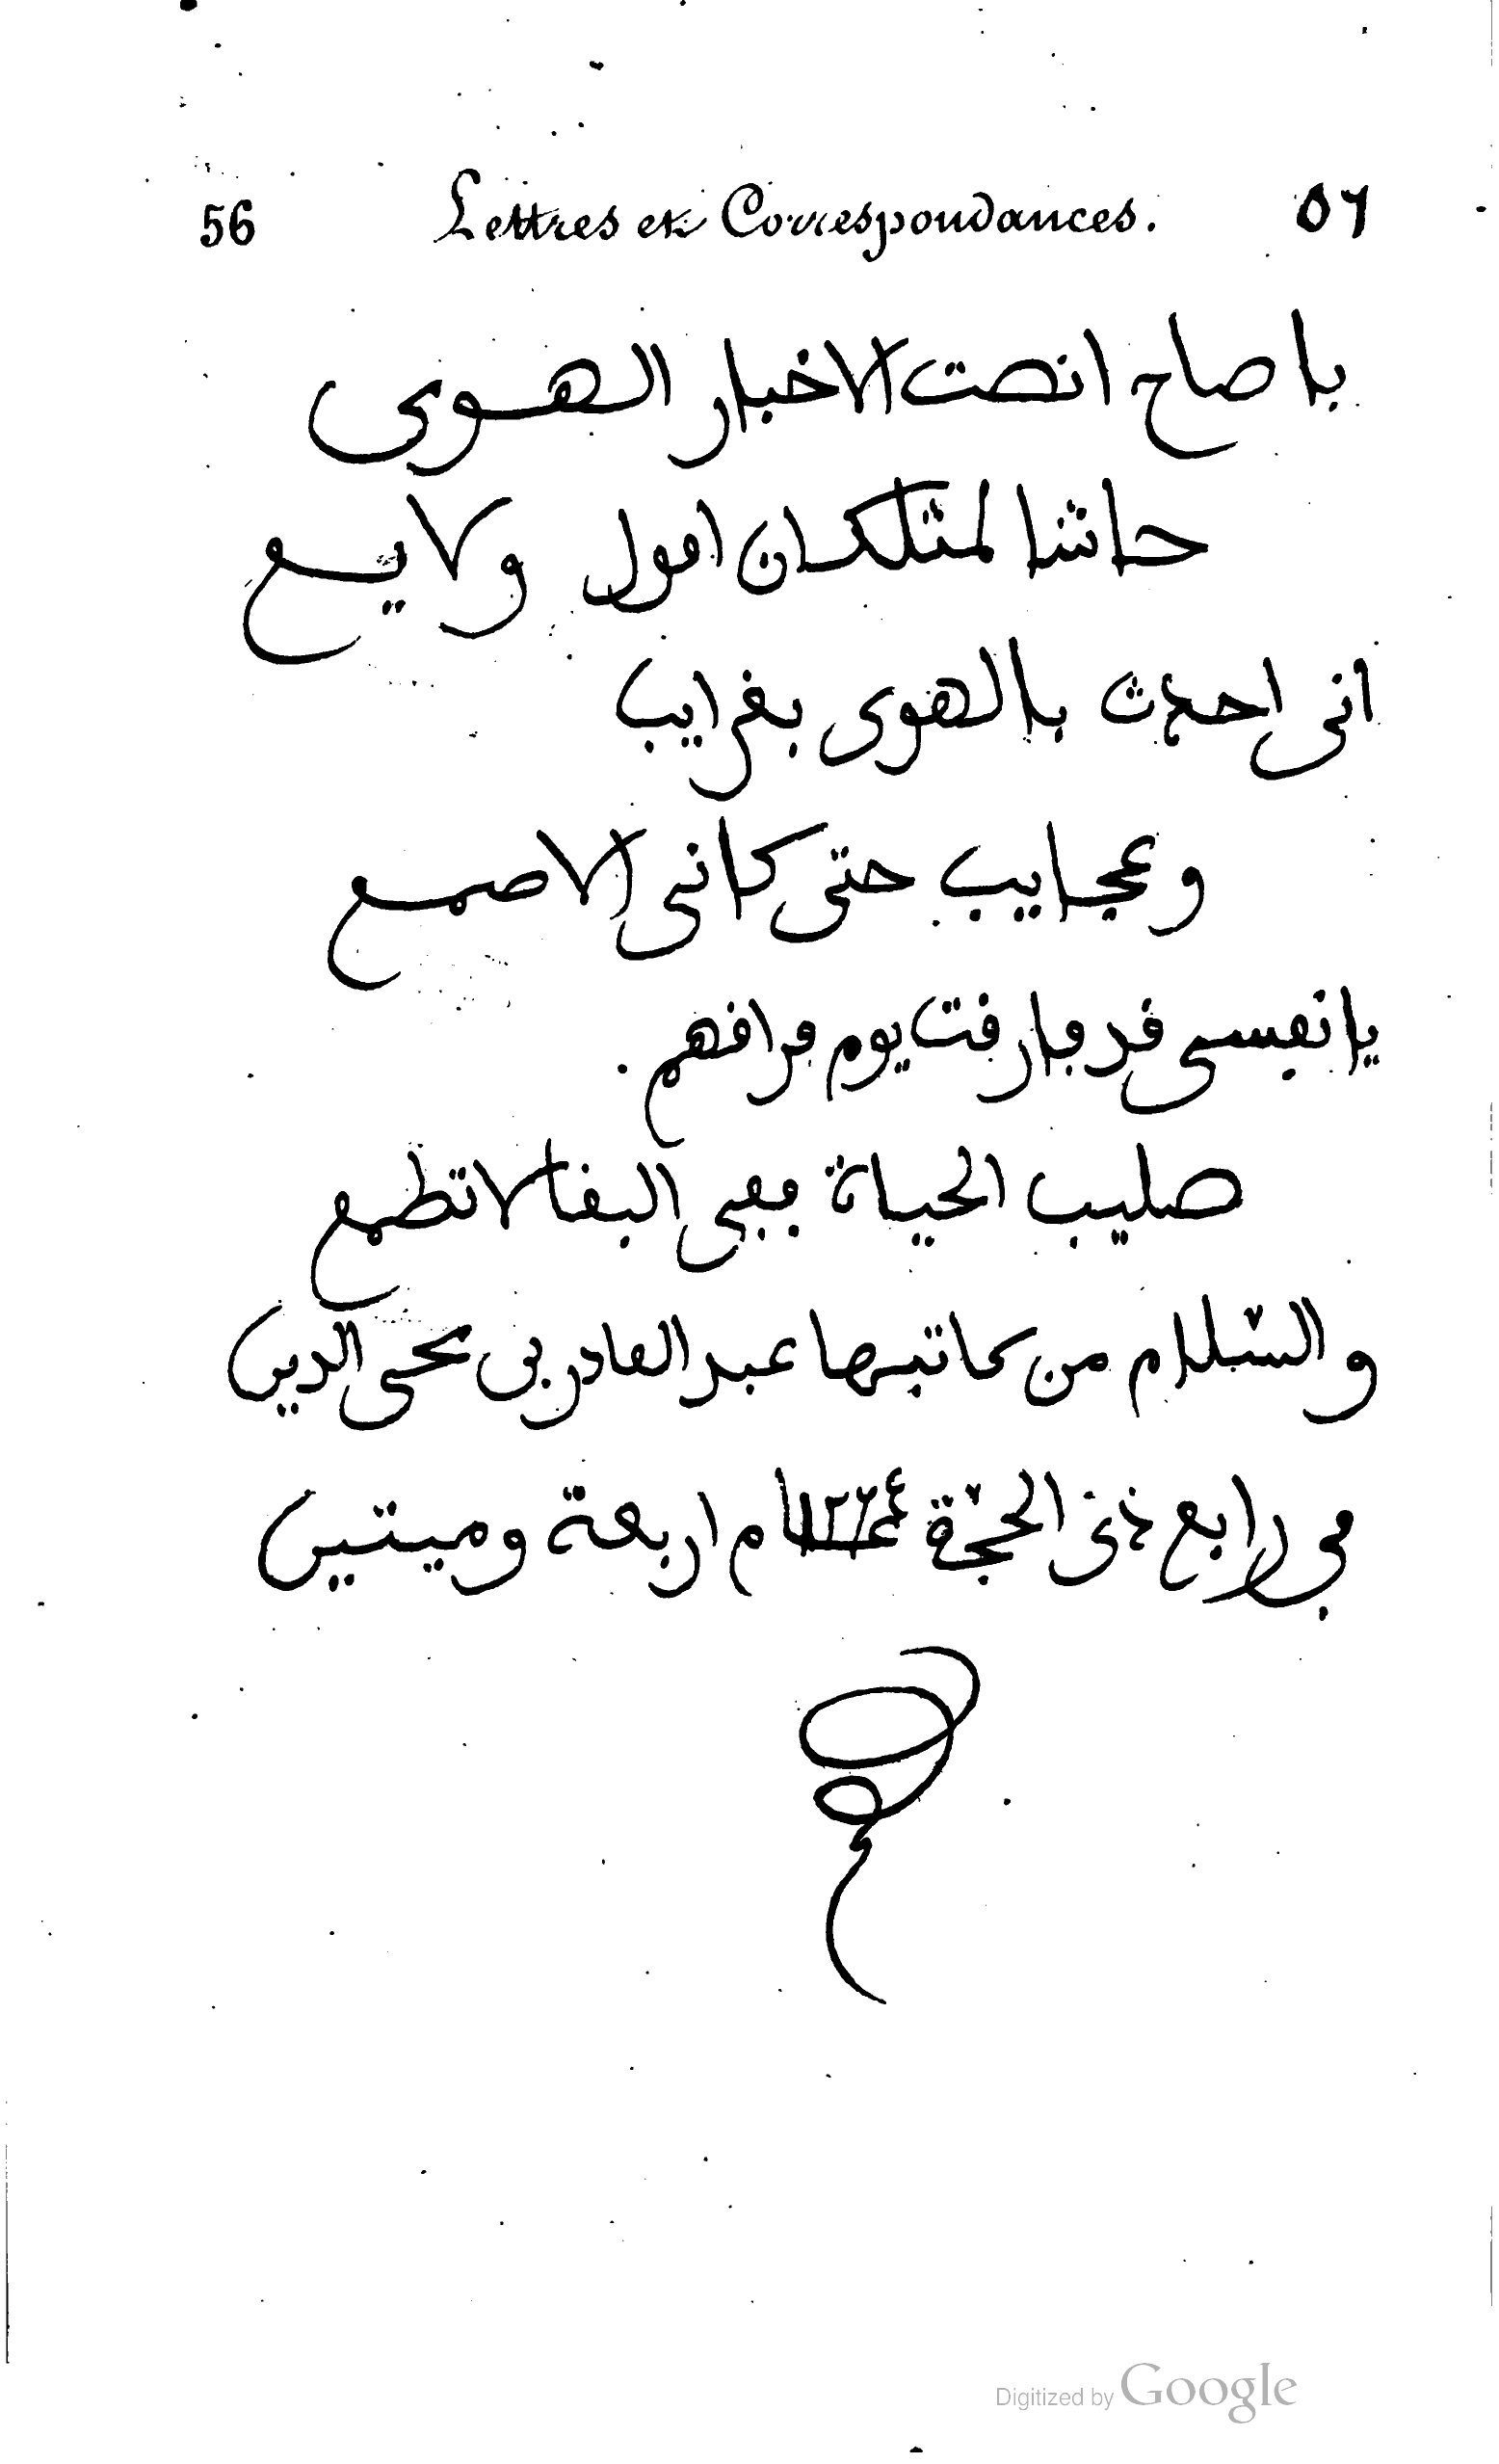 56 Lettres et Correspondances. ٥٦
يا صاح انصت الاخبار الهوى
حاشا لمثلك ان اقول ولا يع
انى احدث بالهوى بغرايب
وعجايب حتى كانى الاصمع
يا نفسى قد فارقت يوم فراقهم
صليب الحياة ففى البقا لا تطمع
والسّلام من كاتبها عبد القادر بن محى الدين
في رابع ذى الحجّة ١٢٦٤ ام اربعة وميتين
Digitized by Google